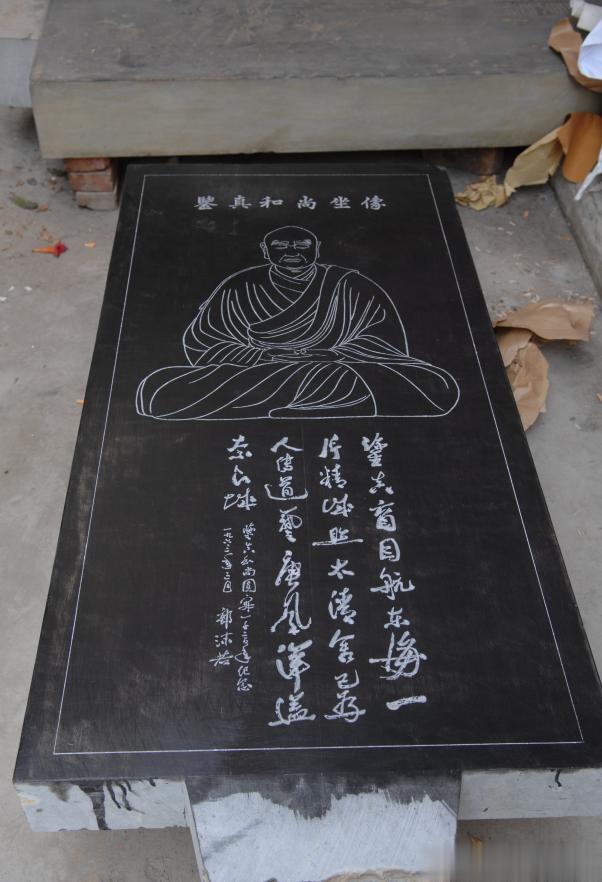 鑒真和尚坐像
鑒真盲目航东海一
片精誠照太清舍己為
人傳道藝唐風洋溢
奈良城
鑒真和尚圓寂一千二百年纪念
一九六三年二月 郭沫若